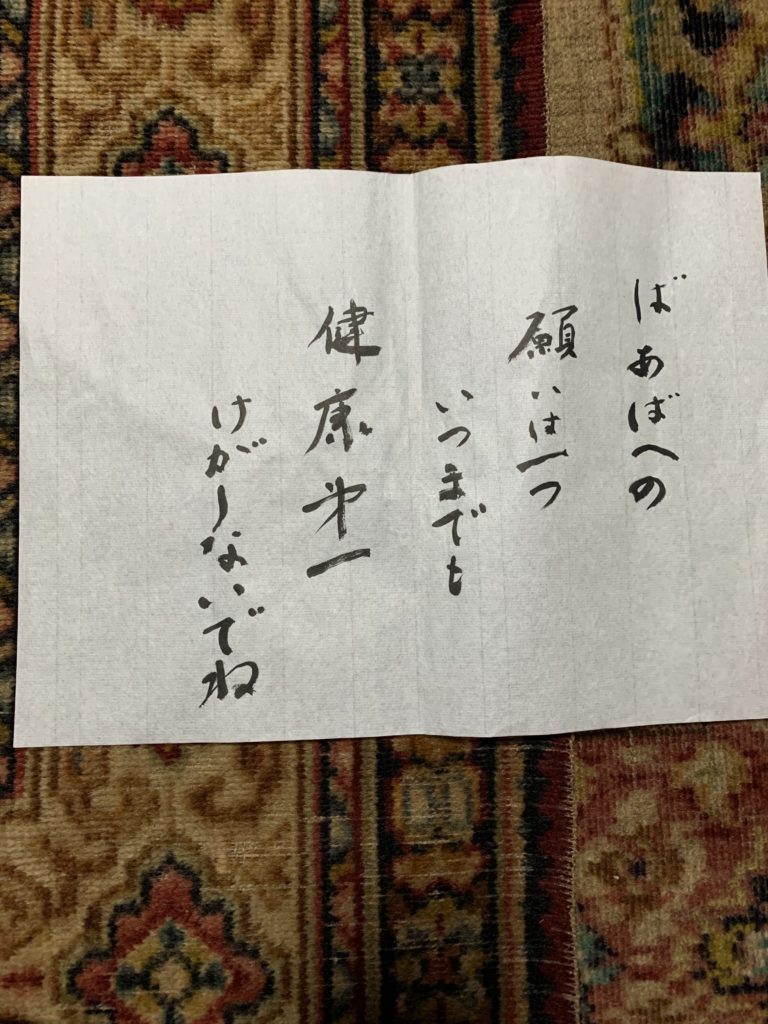 ばあばへの
願いは一つ
いつまでも
健康第一
けがしないでね